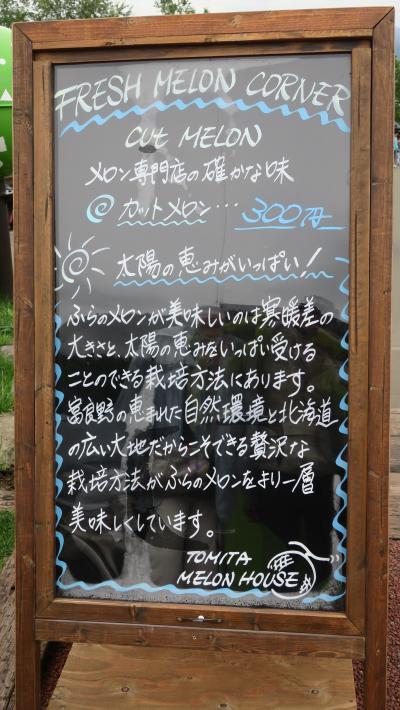 FRESH MELON CORNER
CUT MELON
メロン専門店の確かな味
カットメロン…300円
太陽の恵みがいっぱい!
ふらのメロンが美味しいのは寒暖差の
大きさと、太陽の恵みをいっぱい受ける
ことのできる栽培方法にあります。
富良野の恵まれた自然環境と北海道
の広い大地だからこそできる贅沢な
栽培方法がふらのメロンをより一層
美味しくしています。
TOMITA
MELON HOUSE